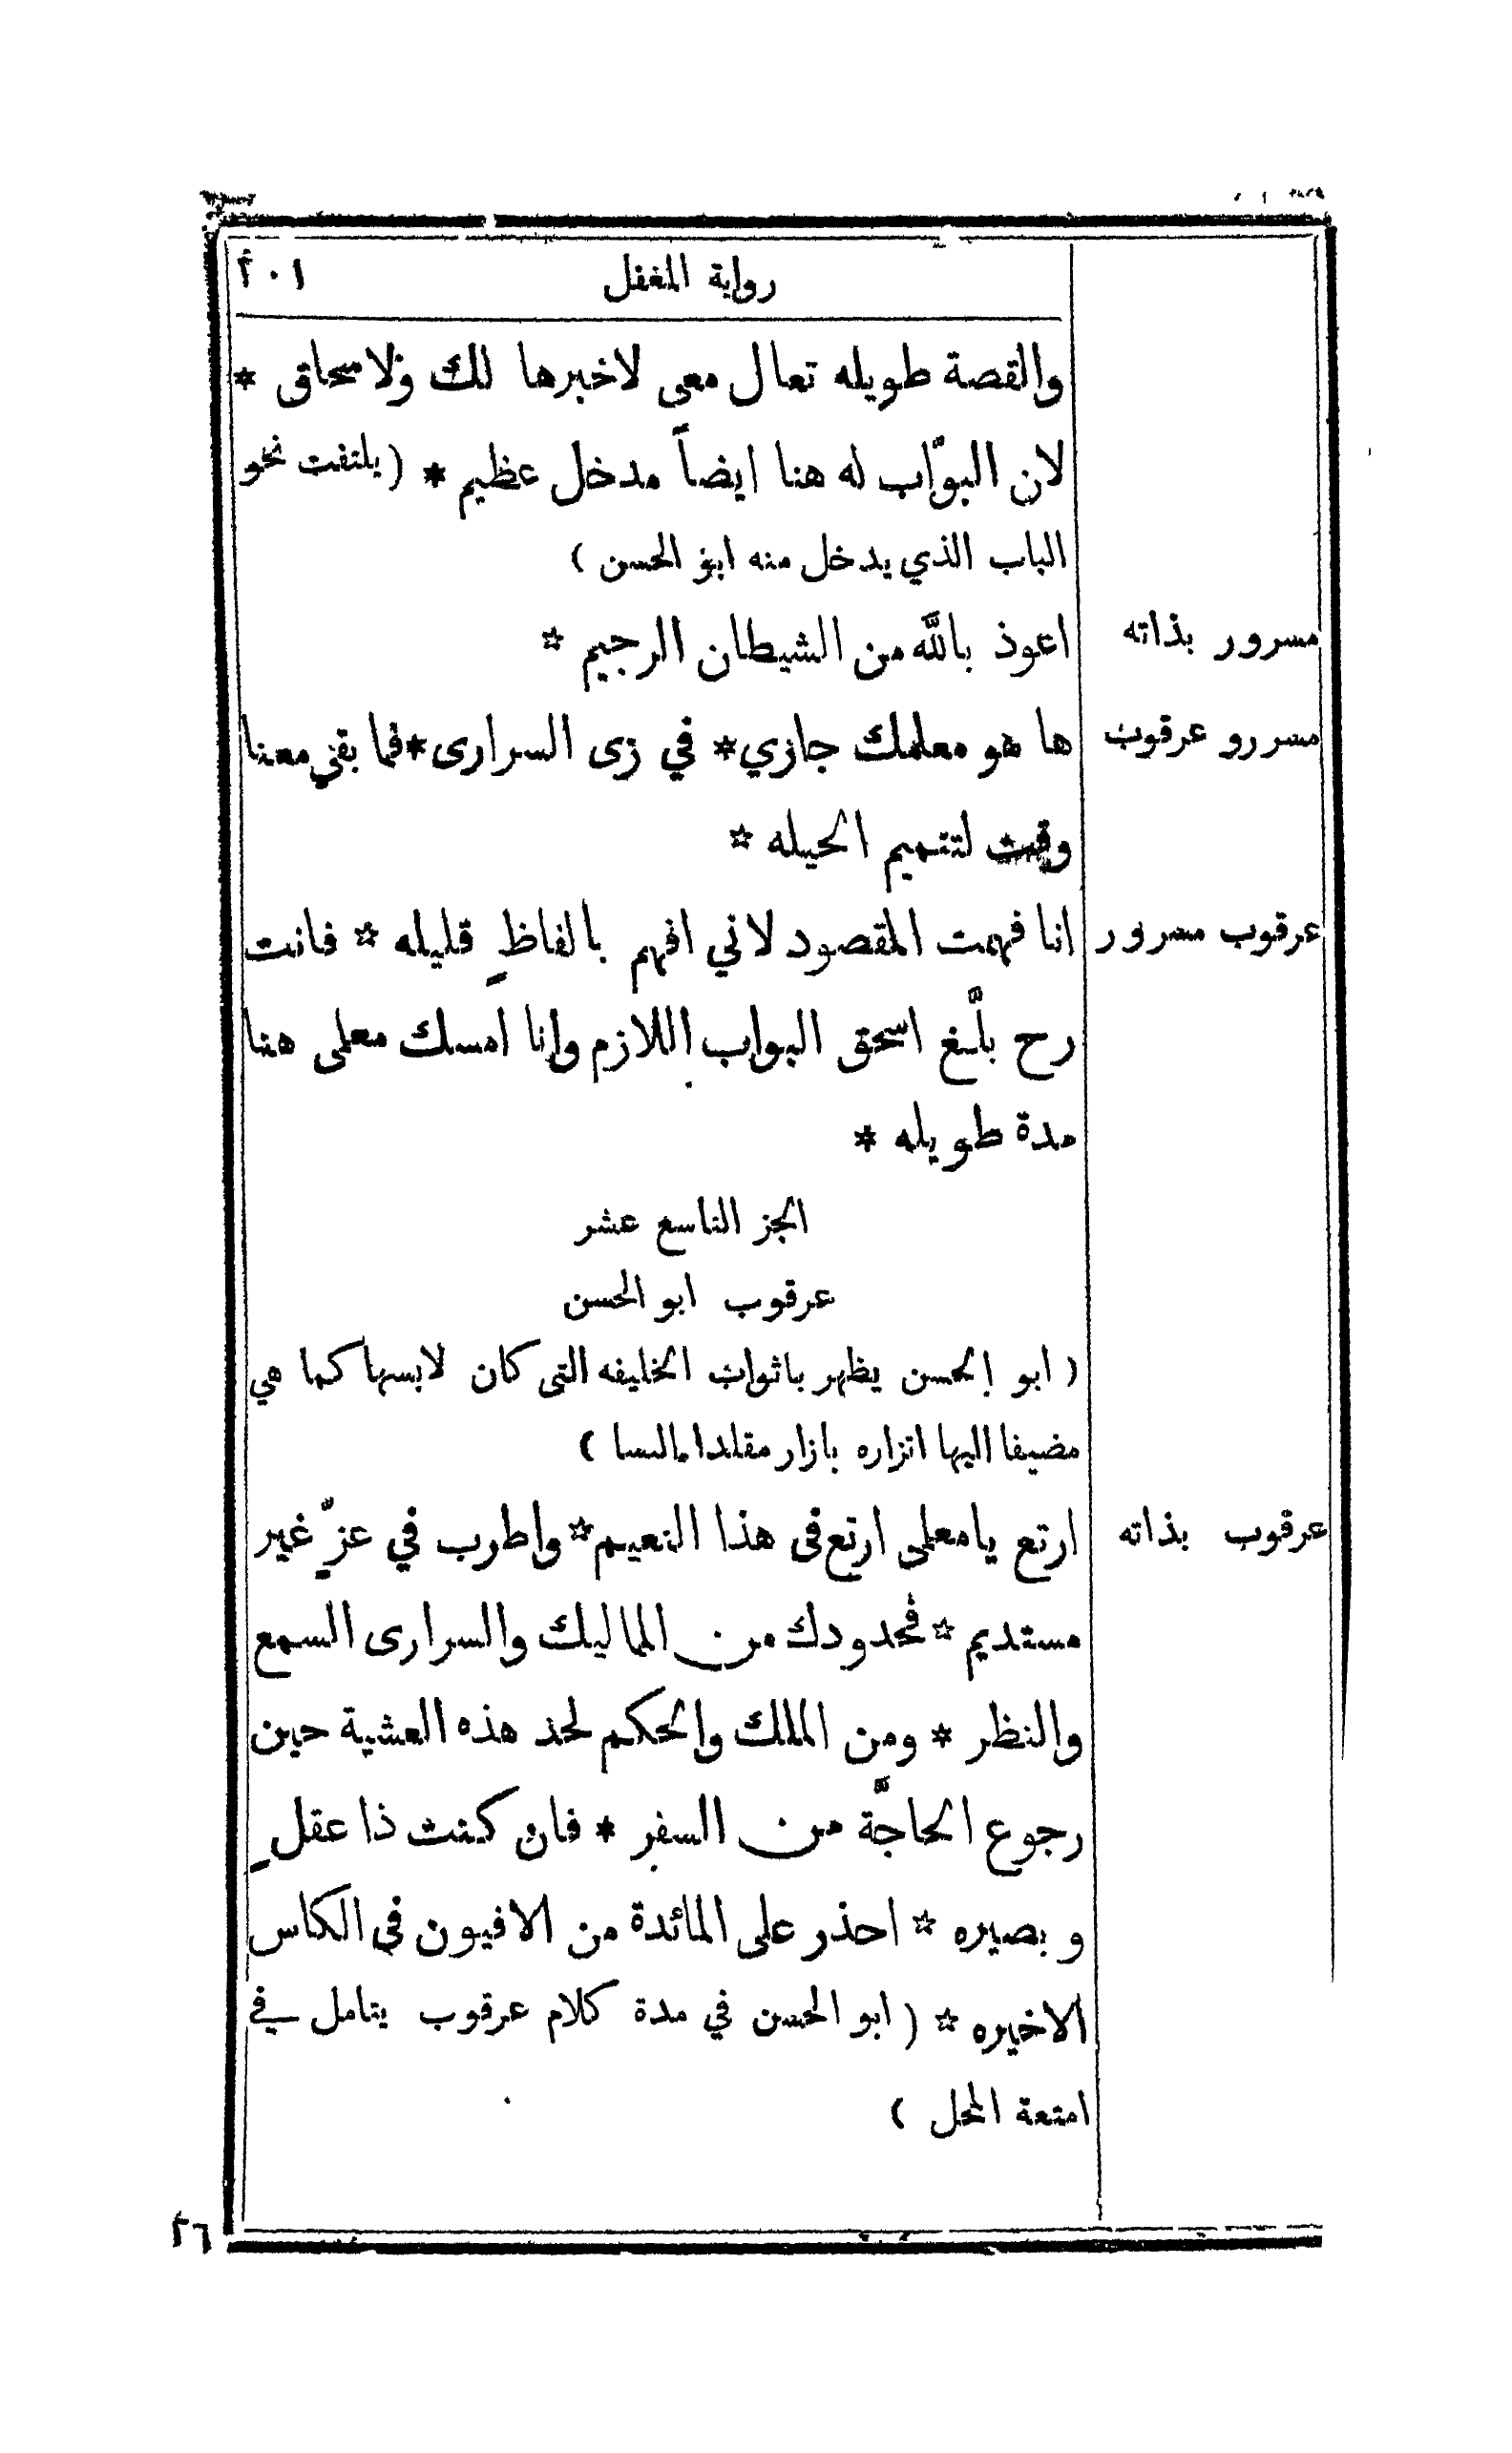 رواية المغفل ٢٠١
والقصة طويله تعال معي لاخبرها لك ولاسحاق *
لان البوّاب له هنا ايضاً مدخل عظيم * (يلتفت نحو
الباب الذي يدخل منه ابو الحسن)
مسرور بذاته اعوذ بالله من الشيطان الرجيم *
مسررو عرقوب ها هو معلمك جازي* في زى السرارى*فما بقي معنا
وقت لتتميم الحيله *
عرقوب مسرور انا فهمت المقصود لاني افهم بالفاظٍ قليله * فانت
رح بلّغ اسحق البواب اللازم وانا امسك معلمى هنا
مدة طويله *
الجز التاسع عشر
عرقوب ابو الحسن
(ابو الحسن يظهر باثواب الخليفه التى كان لابسها كما هي
مضيفا اليها اتزاره بازار مقلدا بالنسا)
عرقوب بذاته ارتع يامعلمى ارتع فى هذا النعيم*واطرب في عزٍّ غير
مستديم * فحدودك من المماليك والسرارى السمع
والنظر * ومن الملك والحكم لحد هذه العشية حين
رجوع الحاجّة من السفر * فان كنت ذا عقلٍ
وبصيره * احذر على المائدة من الافيون فى الكاس
الاخيره * (ابو الحسن في مدة كلام عرقوب يتامل في
امتعة المحل)
٢٦